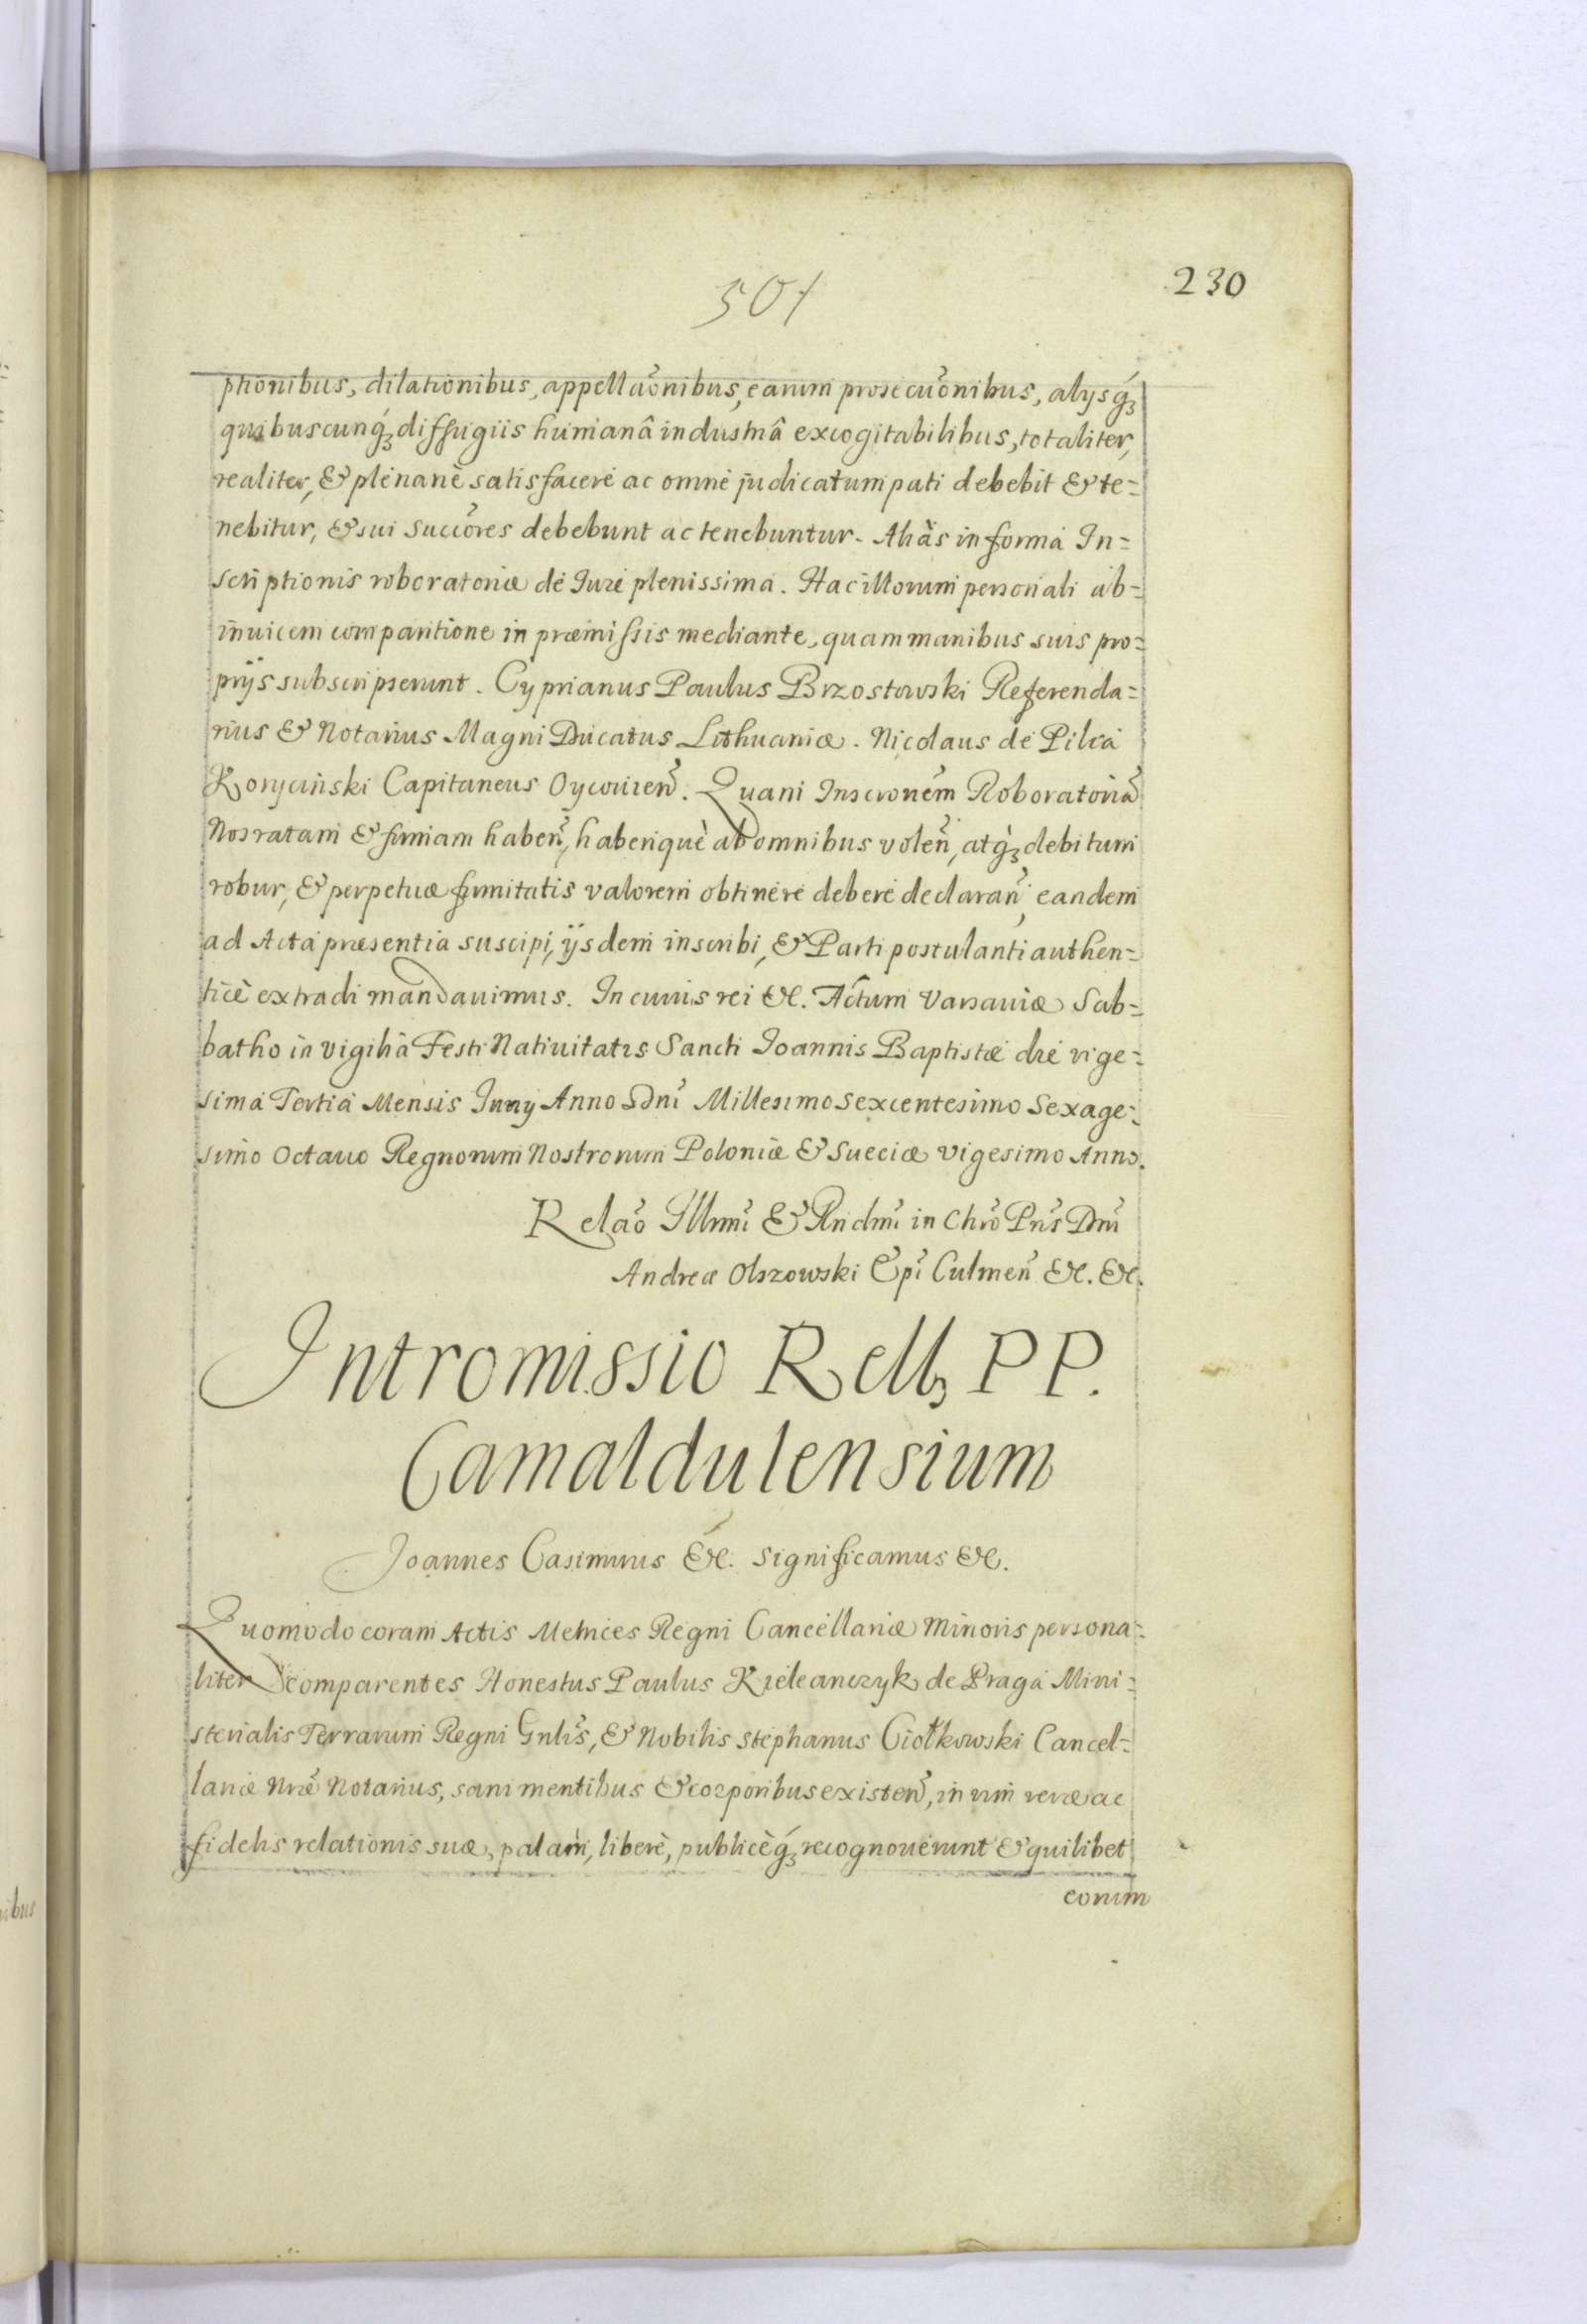 501
230
ptionibus, dilationibus, appellãonibus, earum prosecũonibus, alysq́ꝫ
quibuscunq́ꝫ diffugiis humanâ industriâ excogitabilibus, totaliter,
realiter, & plenariè satisfacere ac omne judicatum pati debebit & te=
nebitur, & sui Succõres debebunt ac tenebuntur. Aliàs in forma In=
scriptionis roboratoriæ de Jure plenissima. Hac illorum personali ab=
invicem comparitione in præmissis mediante, quam manibus suis pro=
prÿs subscripserunt. Cyprianus Paulus Brzostowski Referenda=
rius & Notarius Magni Ducatus Lithuaniæ. Nicolaus de Pilca
Koryciński Capitaneus Oycovien̄. Quam Inscrõnem Roboratoriã
Nos ratam & firmam haben̄, haberiquè ab omnibus volen̄, atq́ꝫ debitum
robur, & perpetuæ firmitatis valorem obtinere debere declaran̄, eandem
ad Acta præsentia suscipi, ÿsdem inscribi, & Parti postulanti authen=
ticè extradi mandavimus. In cuius rei &c. Actum Varsaviæ Sab=
batho in Vigilia Festi Nativitatis Sancti Joannis Baptistæ die vige=
sima Tertia Mensis Juny Anno Dn̄i Millesimo Sexcentesimo Sexage=
simo Octavo Regnorum Nostrorum Poloniæ & Sueciæ Vigesimo Anno.
Relaõ Illmi & Rndmi in Chrõ Pr̃is Dn̄i
Andreæ Olszowski Ep̃i Culmen̄ &c. &c.
Intromissio Rellꝫ PP.
Camaldulensium
Joannes Casimirus &c. Significamus &c.
Quomodo coram Actis Metrices Regni Cancellariæ Minoris persona=
liter comparentes Honestus Paulus Kieleanczyk de Praga Mini=
sterialis Terrarum Regni Gnl̃is, & Nobilis Stephanus Ciołkowski Cancel=
lariæ Nr̃æ Notarius, sani mentibus & corporibus existen̄, in vim veræ ac
fidelis relationis suæ, palam, liberè, publicèq́ꝫ recognoverunt & quilibet
eorum